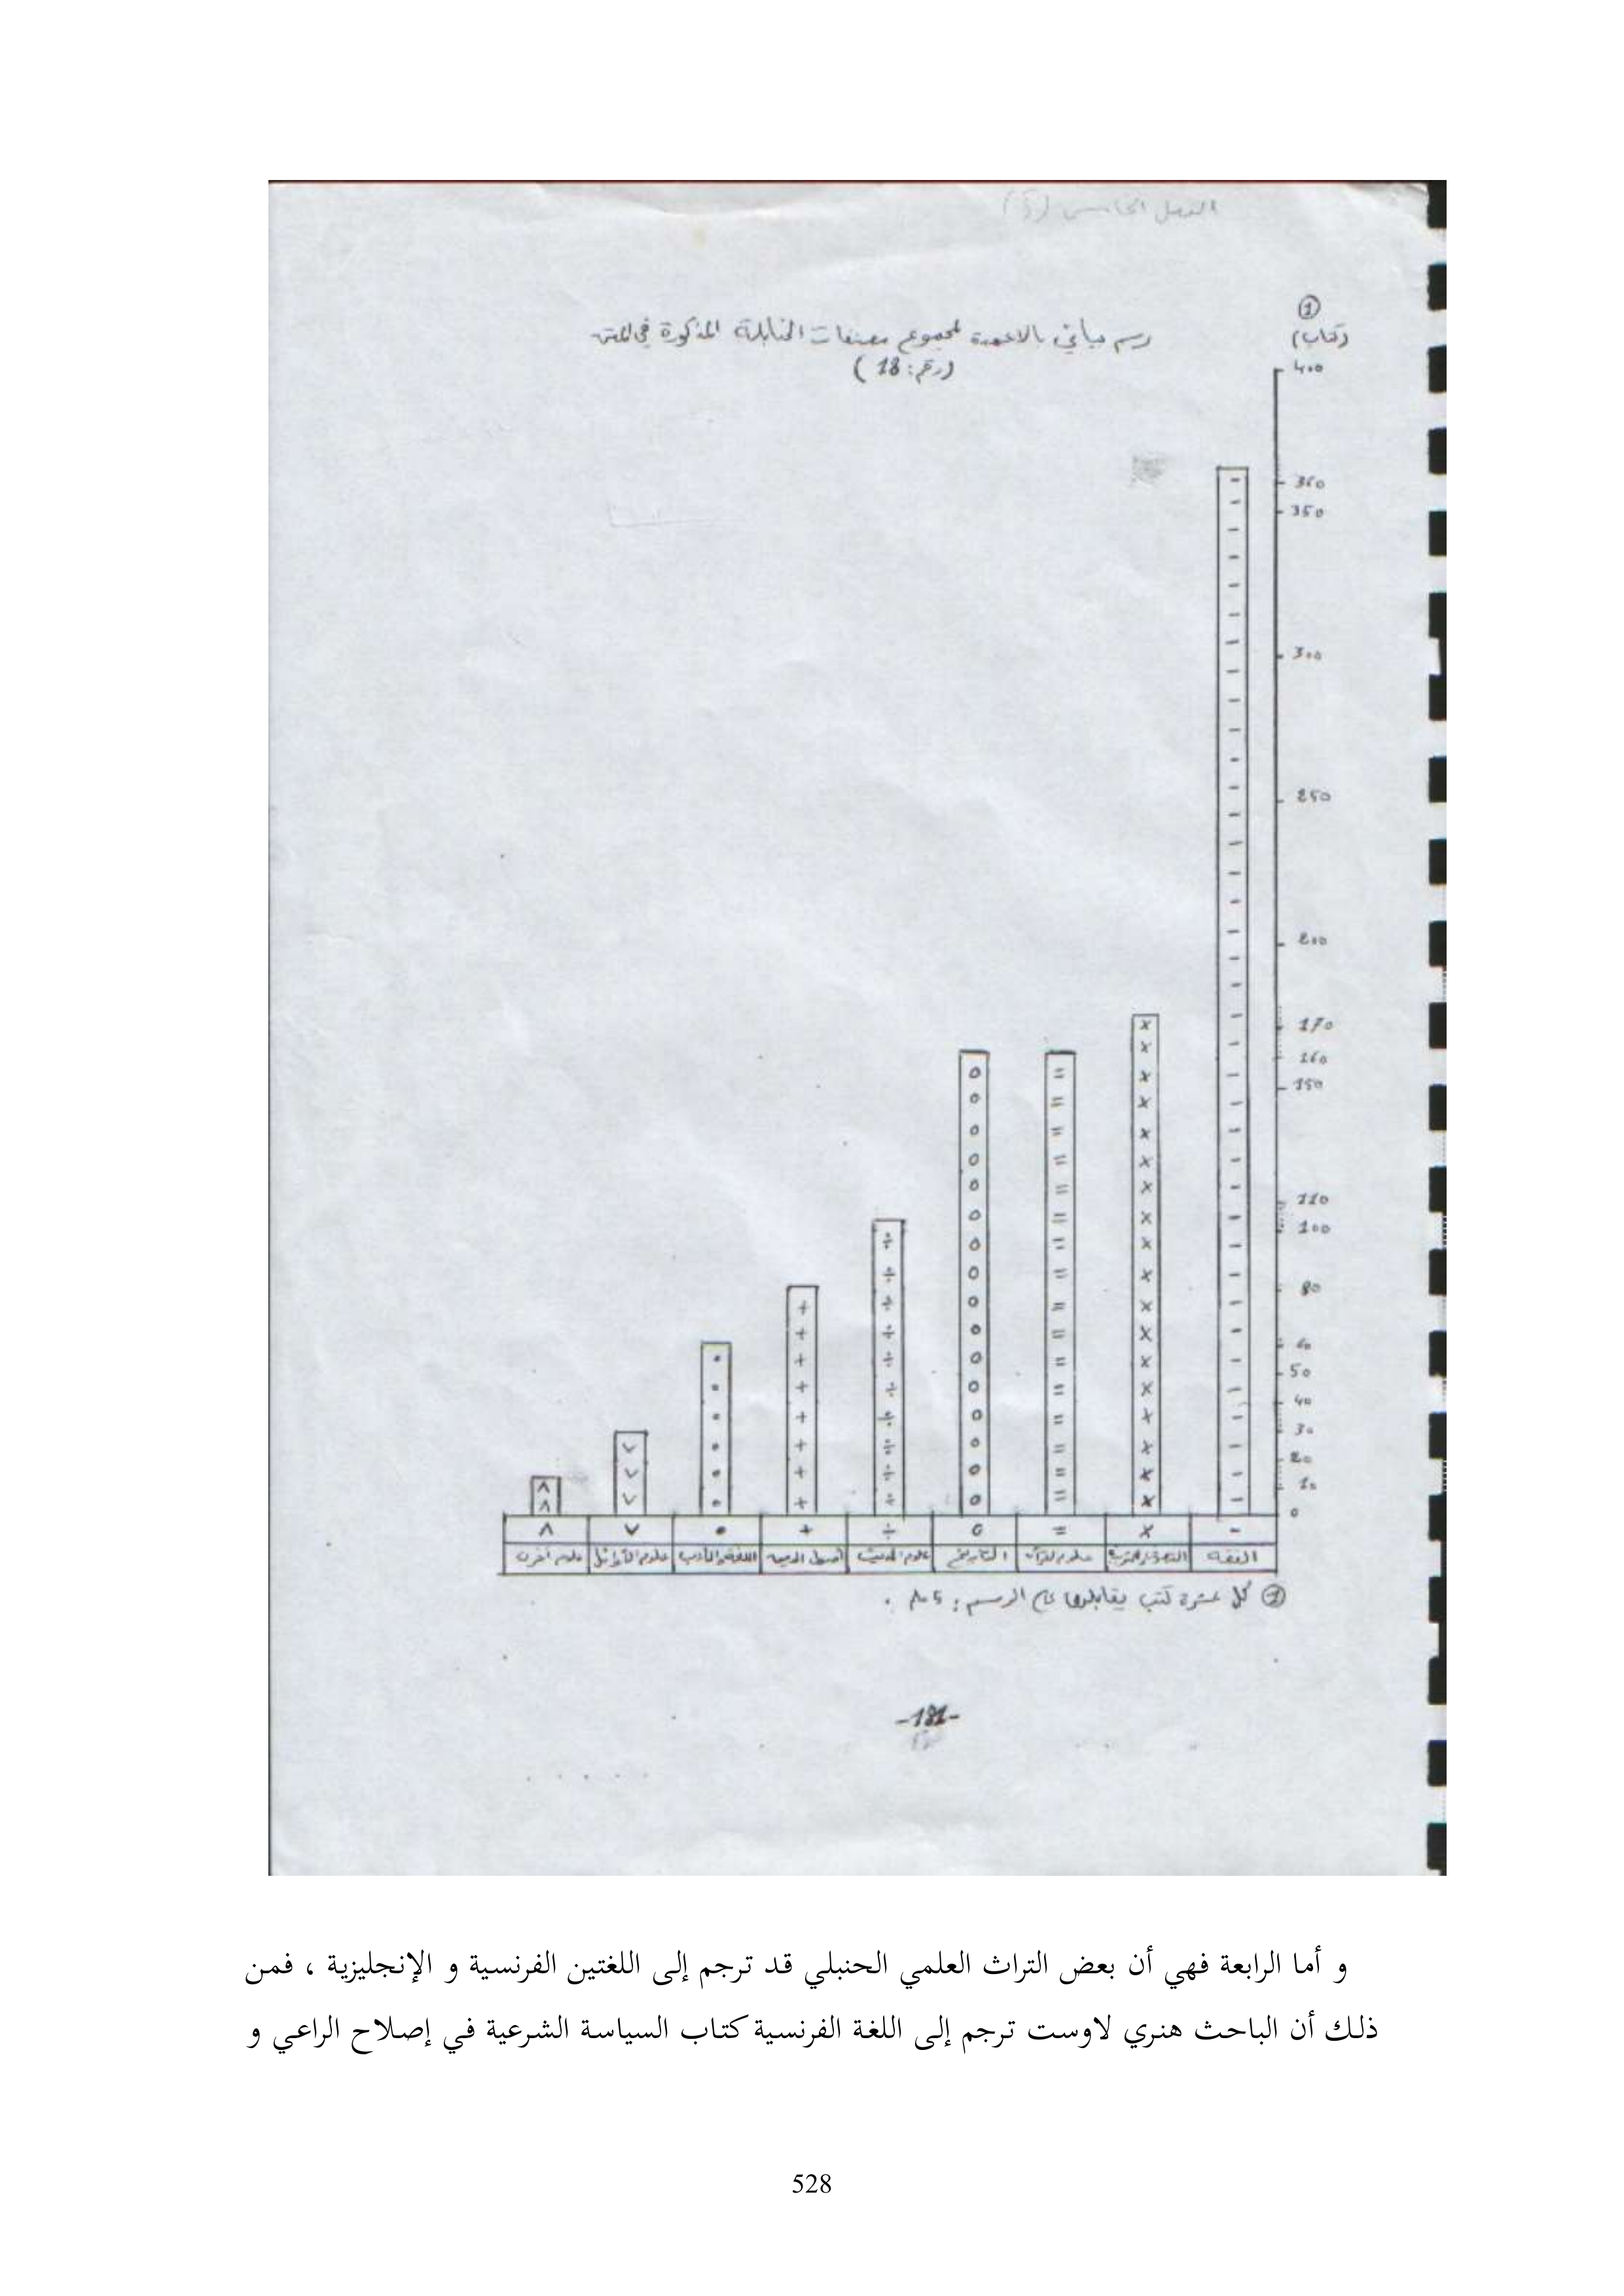 الفصل الخامس (5)
①
(كتاب)
رسم بياني بالاعمدة لمجموع مصنفات الحنابلة المذكورة في المتن
(رقم: 18)
400
360
350
300
250
200
170
160
150
110
100
80
60
50
40
30
20
10
0
- × = o ÷ + • ∨ ∧
الفقه | علوم القرآن | التاريخ | علوم الحديث | أصول الدين | اللغة والأدب | علوم الأوائل | علوم أخرى
① كل عشرة كتب يقابلها في الرسم: 5 ملم .
-181-
و أما الرابعة فهي أن بعض التراث العلمي الحنبلي قد ترجم إلى اللغتين الفرنسية و الإنجليزية ، فمن
ذلك أن الباحث هنري لاوست ترجم إلى اللغة الفرنسية كتاب السياسة الشرعية في إصلاح الراعي و
528